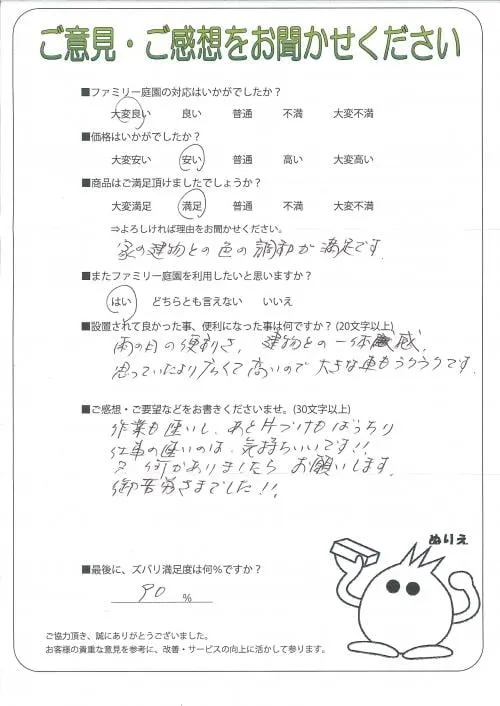 ご意見・ご感想をお聞かせください
■ファミリー庭園の対応はいかがでしたか？
大変良い 良い 普通 不満 大変不満
■価格はいかがでしたか？
大変安い 安い 普通 高い 大変高い
■商品はご満足頂けましたでしょうか？
大変満足 満足 普通 不満 大変不満
⇒よろしければ理由をお聞かせください。
家の建物との色の調和が満足です。
■またファミリー庭園を利用したいと思いますか？
はい どちらとも言えない いいえ
■設置されて良かった事、便利になった事は何ですか？(20文字以上)
雨の日の便利さ、建物との一体感、
思っていたより広くて高いので大きな車もラクラクです。
■ご感想・ご要望などをお書きくださいませ。(30文字以上)
作業も速いし、あと片づけもばっちり
仕事の速いのは、気持ちいいです!!
又何かありましたらお願いします。
御苦労さまでした!!
ぬりえ
■最後に、ズバリ満足度は何%ですか？
90 %
ご協力頂き、誠にありがとうございました。
お客様の貴重な意見を参考に、改善・サービスの向上に活かして参ります。